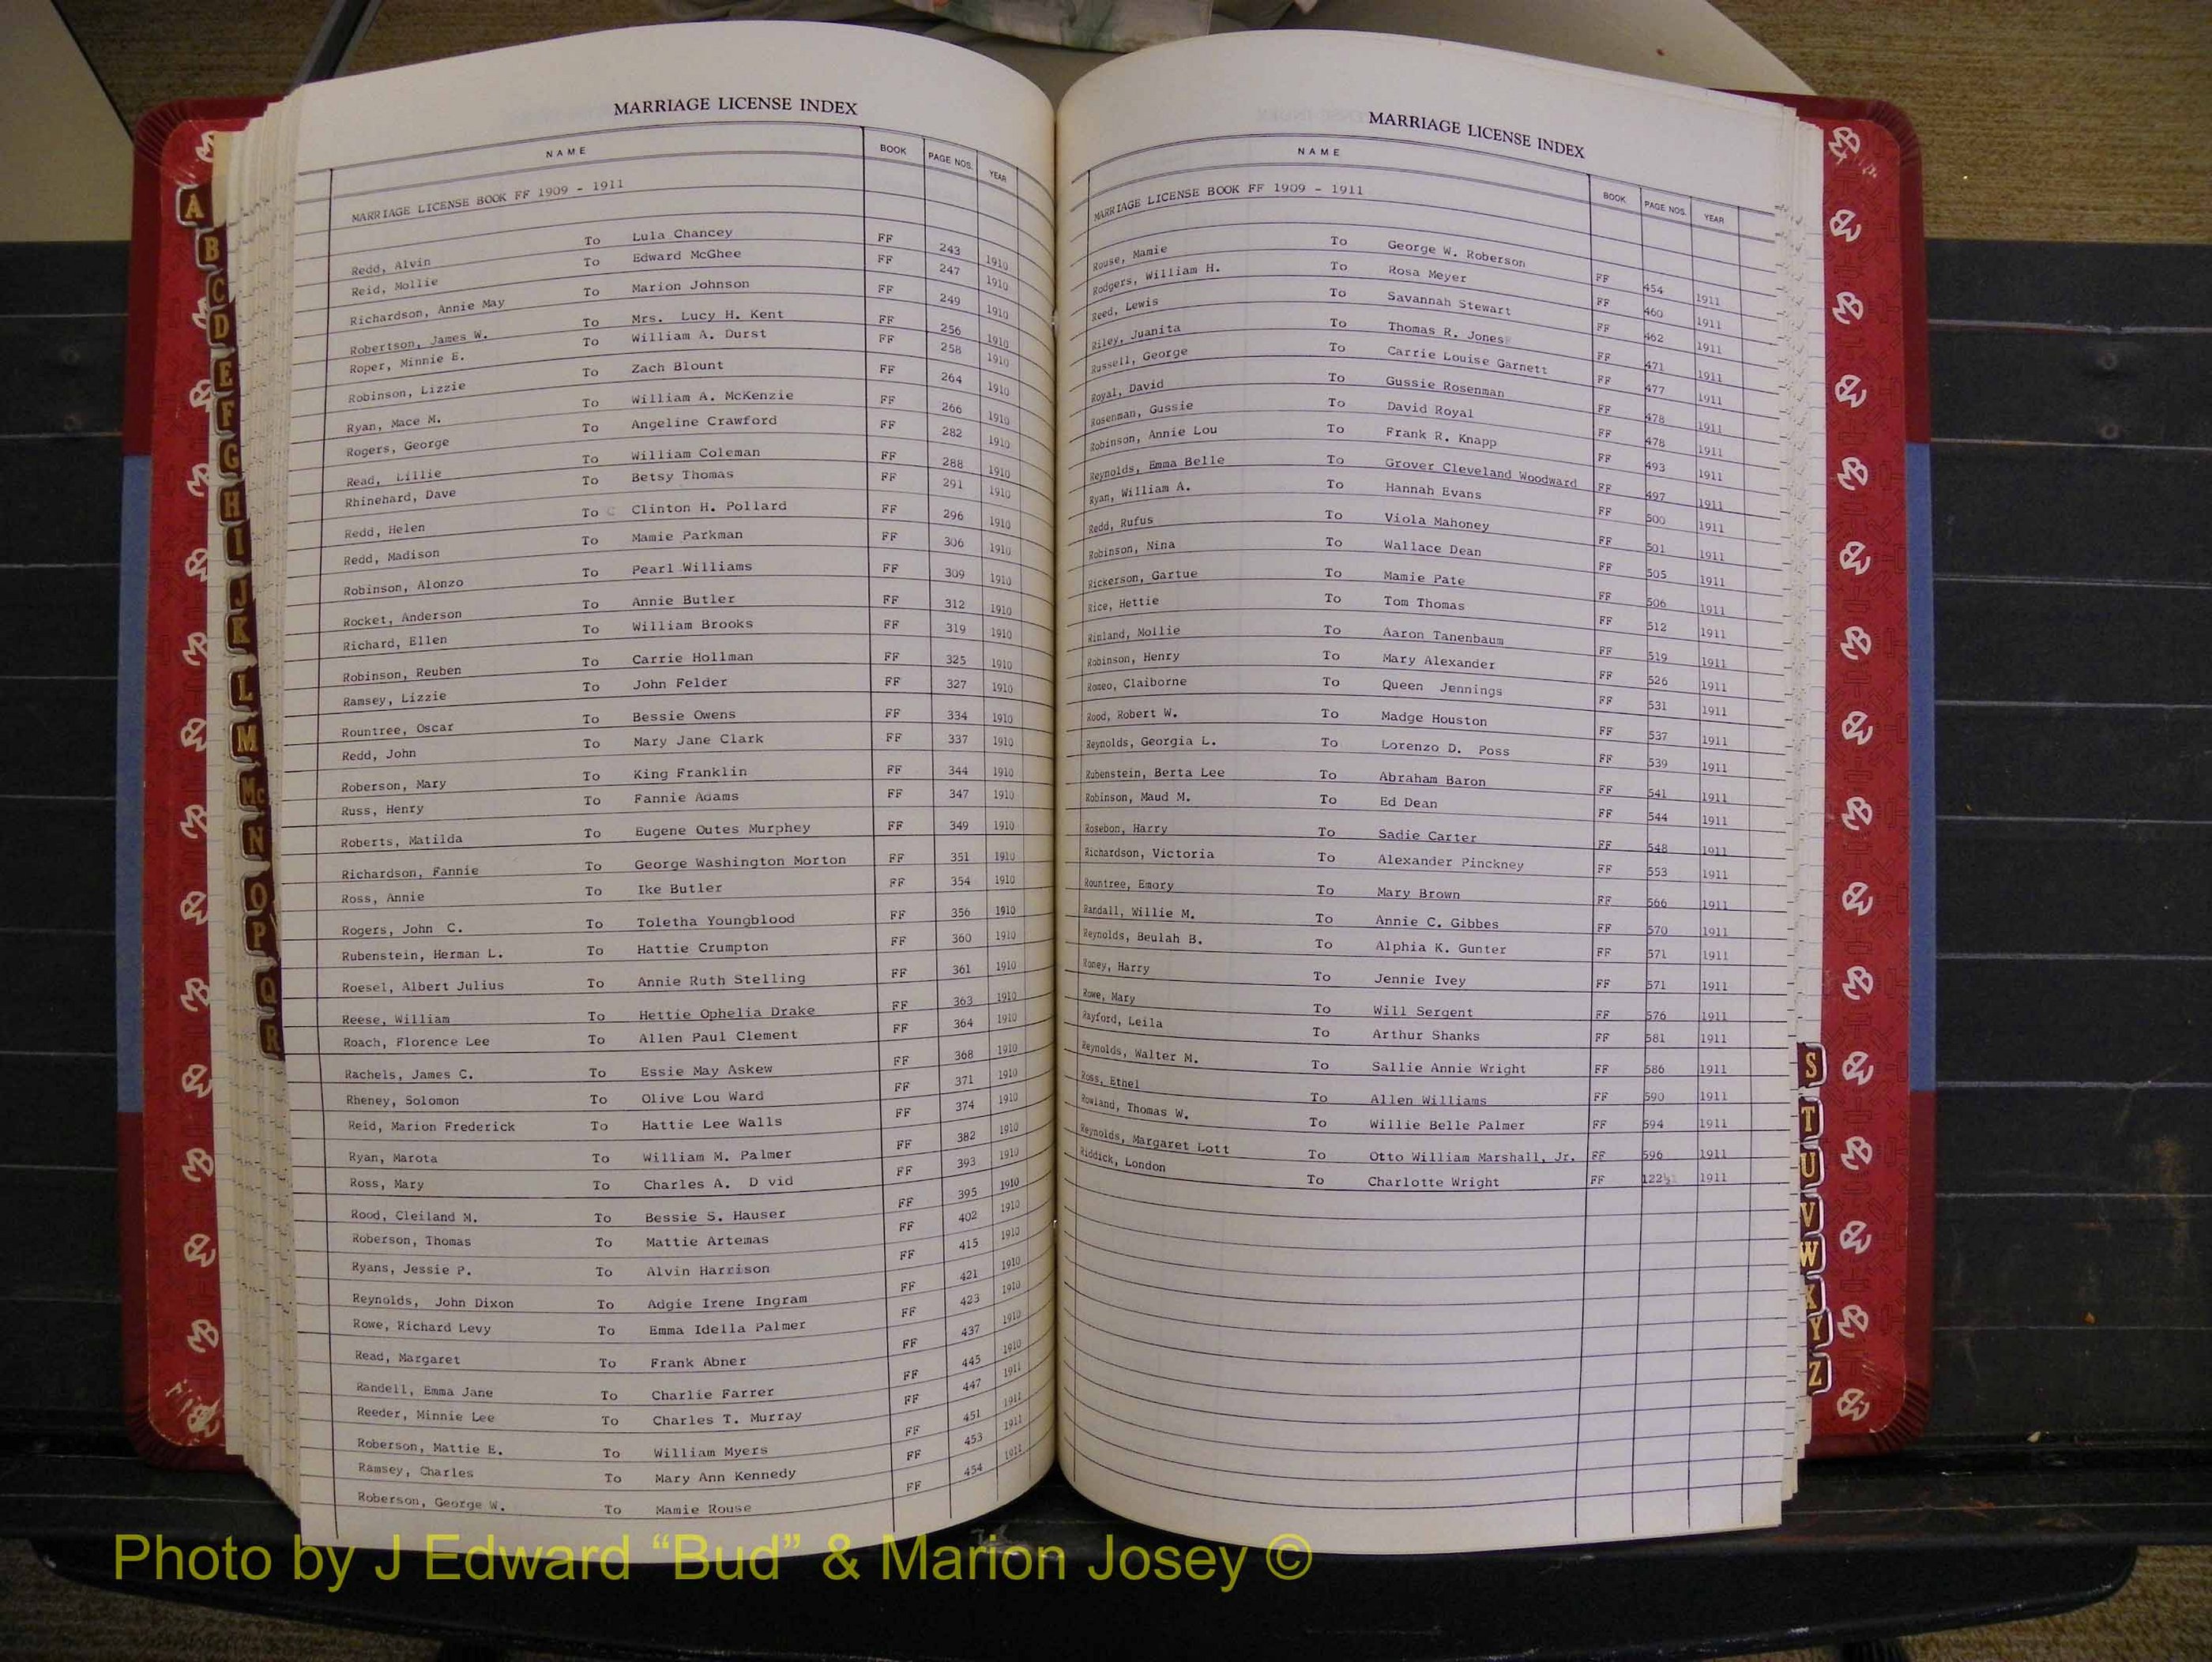 MARRIAGE LICENSE INDEX
NAME BOOK PAGE NOS. YEAR
MARRIAGE LICENSE BOOK FF 1909 - 1911
Redd, Alvin To Lula Chancey FF 243 1910
Reid, Mollie To Edward McGhee FF 247 1910
Richardson, Annie May To Marion Johnson FF 249 1910
Robertson, James W. To Mrs. Lucy H. Kent FF 256 1910
Roper, Minnie E. To William A. Durst FF 258 1910
Robinson, Lizzie To Zach Blount FF 264 1910
Ryan, Mace M. To William A. McKenzie FF 266 1910
Rogers, George To Angeline Crawford FF 282 1910
Read, Lillie To William Coleman FF 288 1910
Rhinehard, Dave To Betsy Thomas FF 291 1910
Redd, Helen To C Clinton H. Pollard FF 296 1910
Redd, Madison To Mamie Parkman FF 306 1910
Robinson, Alonzo To Pearl Williams FF 309 1910
Rocket, Anderson To Annie Butler FF 312 1910
Richard, Ellen To William Brooks FF 319 1910
Robinson, Reuben To Carrie Hollman FF 325 1910
Ramsey, Lizzie To John Felder FF 327 1910
Rountree, Oscar To Bessie Owens FF 334 1910
Redd, John To Mary Jane Clark FF 337 1910
Roberson, Mary To King Franklin FF 344 1910
Russ, Henry To Fannie Adams FF 347 1910
Roberts, Matilda To Eugene Outes Murphey FF 349 1910
Richardson, Fannie To George Washington Morton FF 351 1910
Ross, Annie To Ike Butler FF 354 1910
Rogers, John C. To Toletha Youngblood FF 356 1910
Rubenstein, Herman L. To Hattie Crumpton FF 360 1910
Roesel, Albert Julius To Annie Ruth Stelling FF 361 1910
Reese, William To Hettie Ophelia Drake FF 363 1910
Roach, Florence Lee To Allen Paul Clement FF 364 1910
Rachels, James C. To Essie May Askew FF 368 1910
Rheney, Solomon To Olive Lou Ward FF 371 1910
Reid, Marion Frederick To Hattie Lee Walls FF 374 1910
Ryan, Marota To William M. Palmer FF 382 1910
Ross, Mary To Charles A. D vid FF 393 1910
Rood, Cleiland M. To Bessie S. Hauser FF 395 1910
Roberson, Thomas To Mattie Artemas FF 402 1910
Ryans, Jessie P. To Alvin Harrison FF 415 1910
Reynolds, John Dixon To Adgie Irene Ingram FF 421 1910
Rowe, Richard Levy To Emma Idella Palmer FF 423 1910
Read, Margaret To Frank Abner FF 437 1910
Randell, Emma Jane To Charlie Farrer FF 445 1910
Reeder, Minnie Lee To Charles T. Murray FF 447 1911
Roberson, Mattie E. To William Myers FF 451 1911
Ramsey, Charles To Mary Ann Kennedy FF 453 1911
Roberson, George W. To Mamie Rouse FF 454 1911
MARRIAGE LICENSE INDEX
NAME BOOK PAGE NOS. YEAR
MARRIAGE LICENSE BOOK FF 1909 - 1911
Rouse, Mamie To George W. Roberson FF 454 1911
Rodgers, William H. To Rosa Meyer FF 460 1911
Reed, Lewis To Savannah Stewart FF 462 1911
Riley, Juanita To Thomas R. Jones FF 471 1911
Russell, George To Carrie Louise Garnett FF 477 1911
Royal, David To Gussie Rosenman FF 478 1911
Rosenman, Gussie To David Royal FF 478 1911
Robinson, Annie Lou To Frank R. Knapp FF 493 1911
Reynolds, Emma Belle To Grover Cleveland Woodward FF 497 1911
Ryan, William A. To Hannah Evans FF 500 1911
Redd, Rufus To Viola Mahoney FF 501 1911
Robinson, Nina To Wallace Dean FF 505 1911
Rickerson, Gartue To Mamie Pate FF 506 1911
Rice, Hettie To Tom Thomas FF 512 1911
Rinland, Mollie To Aaron Tanenbaum FF 519 1911
Robinson, Henry To Mary Alexander FF 526 1911
Romeo, Claiborne To Queen Jennings FF 531 1911
Rood, Robert W. To Madge Houston FF 537 1911
Reynolds, Georgia L. To Lorenzo D. Poss FF 539 1911
Rubenstein, Berta Lee To Abraham Baron FF 541 1911
Robinson, Maud M. To Ed Dean FF 544 1911
Rosebon, Harry To Sadie Carter FF 548 1911
Richardson, Victoria To Alexander Pinckney FF 553 1911
Rountree, Emory To Mary Brown FF 566 1911
Randall, Willie M. To Annie C. Gibbes FF 570 1911
Reynolds, Beulah B. To Alphia K. Gunter FF 571 1911
Roney, Harry To Jennie Ivey FF 571 1911
Rowe, Mary To Will Sergent FF 576 1911
Rayford, Leila To Arthur Shanks FF 581 1911
Reynolds, Walter M. To Sallie Annie Wright FF 586 1911
Ross, Ethel To Allen Williams FF 590 1911
Rowland, Thomas W. To Willie Belle Palmer FF 594 1911
Reynolds, Margaret Lott To Otto William Marshall, Jr. FF 596 1911
Riddick, London To Charlotte Wright FF 122½ 1911
A
B
C
D
E
F
G
H
I
J
K
L
M
Mc
N
O
P
Q
R
S
T
U
V
W
X
Y
Z
Photo by J Edward “Bud” & Marion Josey ©